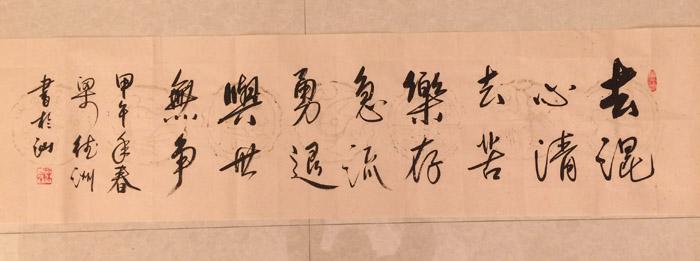 去混
心清
去苦
樂存
急流
勇退
與世
無争
甲午年春
梁徒洲
書於汕